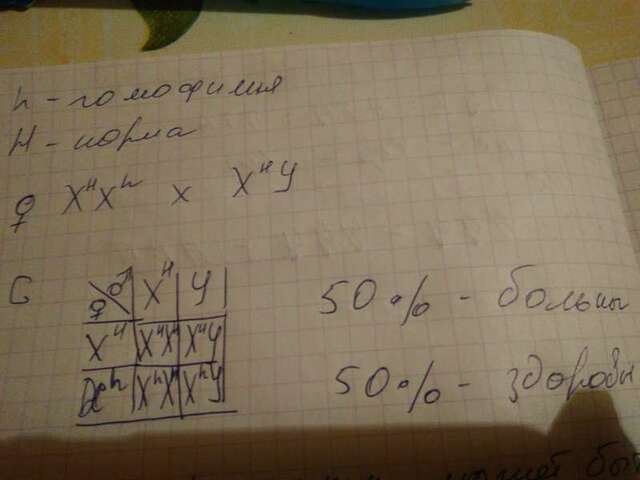 h - гомофилия
H - норма
♀ XᴴXʰ x XᴴY
G ♀\♂ | Xᴴ | Y |
Xᴴ | XᴴXᴴ | XᴴY
Xʰ | XʰXᴴ | XʰY
50% - больны
50% - здоровы